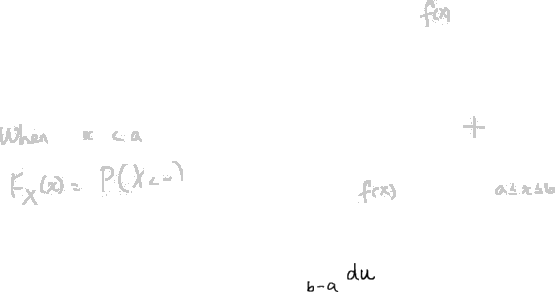 f(x)
When x < a
+
F_X(x) = P(X <
f(x) a ≤ x ≤ b
b-a du